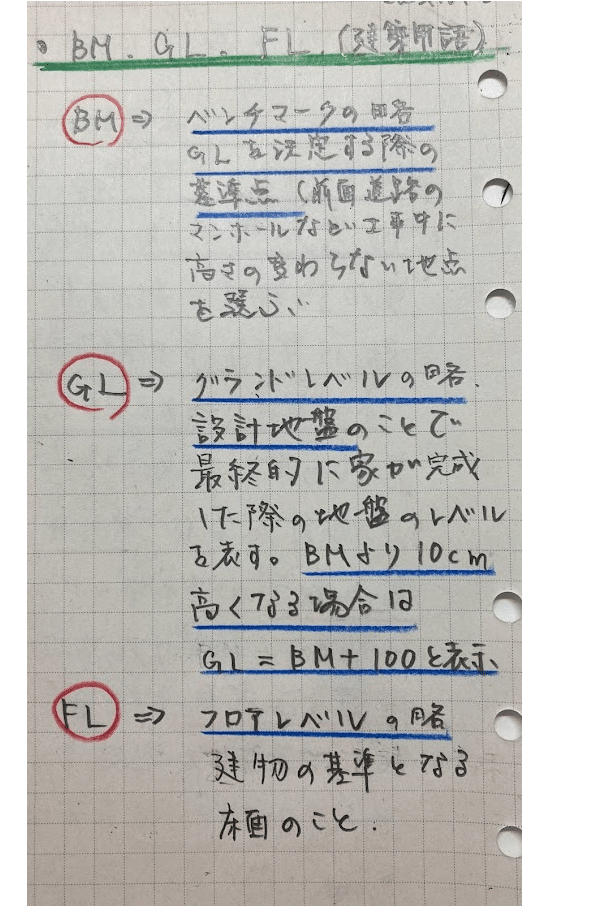 ・BM. GL. FL. (建築用語)
BM ⇒ ベンチマークの略
GLを決定する際の
基準点(前面道路の
マンホールなど工事中に
高さの変わらない地点
を選ぶ
GL ⇒ グランドレベルの略.
設計地盤のことで
最終的に家が完成
した際の地盤のレベル
を表す。BMより10cm
高くなる場合は
GL=BM+100と表示
FL ⇒ フロアレベルの略
建物の基準となる
床面のこと.